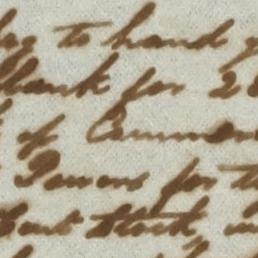 to hand
Bank for 2
of Commer
Powers for th
Cent Stock,